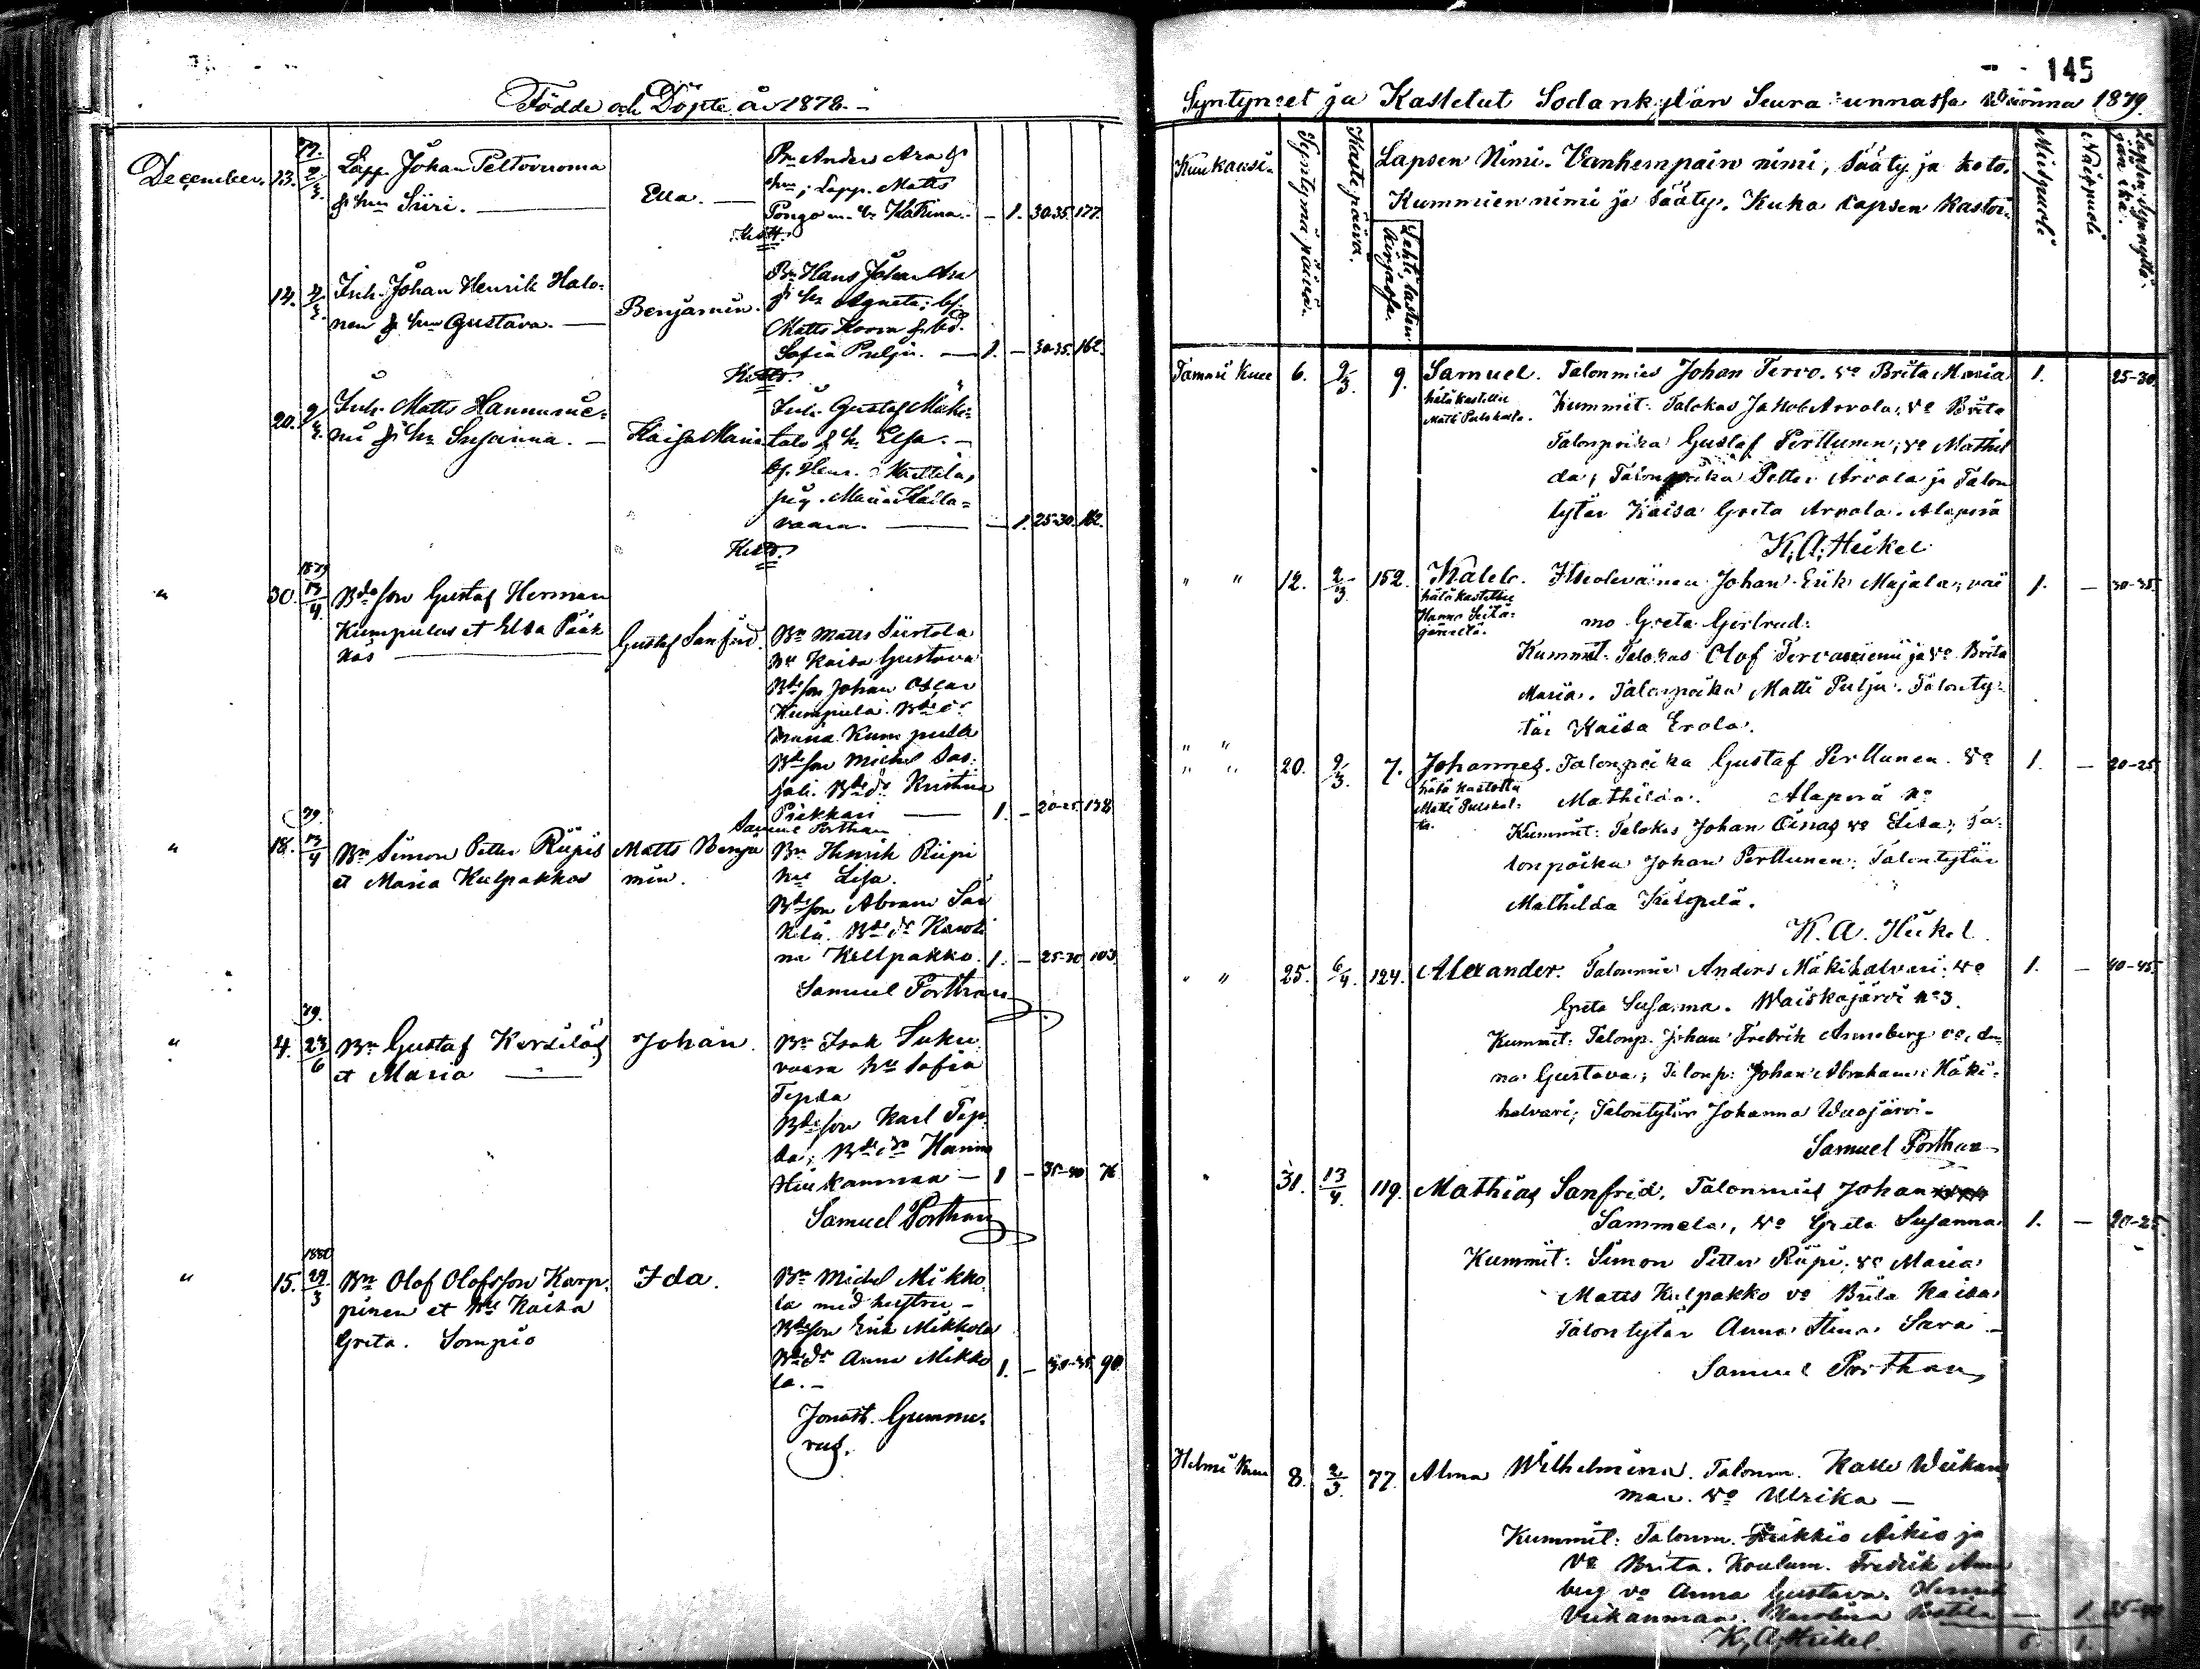 Födde och Döpte år 1878.
December. 13. 79. 2/3. Lapp. Johan Peltovuoma
& hu Siiri. Ella.
Bn Anders Ara &
hu; Lapp. Matts
Pongo m. h. Katrina. - 1. 30-35. 177.
14. 2/3. Inh. Johan Henrik Halo-
nen & hu Gustava. Benjamin.
Bn Hans Johan Ara
& hu Agneta; bs.
Matts Korva & bd.
Sofia Pulju. 1. - 30-35. 162.
20. 2/3. Inh. Matts Hannunie-
mi & hu Susanna. Kaisa Maria
Inh. Gustaf Mäki-
talo & h. Elsa.
bs. Henr. Kuttila,
pig. Maria Kaila-
vaara. - 1. 25-30. 162.
" 30. 1879 13/4 Bdeson Gustaf Herman
Kumpulas et Elsa Pääk
kös Gustaf Sanfrid.
Bn Matts Siirtola
hu Kaisa Gustava
Bdeson Johan Oscar
Kumpula. Bde dr
Maria Kumpula
Bdeson Michel Sas-
sali. Bde dr Kristina
Pääkkari 1 - 20-25 138
Samuel Porthan
" 18. 79. 13/4 Bn Simon Petter Riipis
et Maria Kulpakkos Matts Benja
min.
Bn Henrik Riipi
hu Lisa.
Bdeson Abram Sär
kelä. Bde dr Karoli
na Kellpakko. 1. - 25-30 103
Samuel Porthan
" 4. 79. 23/6 Bn Gustaf Korsilas
et Maria Johan.
Bn Isak Suku
vaara hu Sofia
Tepsa
Bdeson Karl Tep-
sa; Bde dr Hanna
Hiukanmaa 1 - 35-40 76
Samuel Porthan
" 15. 1880 29/3 Bn Olof Olofsson Karp-
pinen et hu Kaisa
Greta. Sompio Ida.
Bn Michel Mikko
la med hustru -
Bdeson Erik Mikkola
Bde dr Anna Mikko
la. 1. - 30-35 90.
Jonath. Gumme-
rus.
145
Syntyneet ja Kastetut Sodankylän Seurakunnassa Wuonna 1879.
Kuukausi.
Syntymä päivä.
Kaste päivä.
Lehti lasten kirjassa.
Lapsen Nimi. Vanhempain nimi, Sääty ja koto.
Kummien nimi ja Sääty. Kuka Lapsen Kastoi.
Miespuoli
Naispuoli
Lapsen synnyttäjän ikä.
Tammi Kuu 6. 2/3 9. Samuel. Talonmies Johan Tervo. vo Brita Maria 1. 25-30
hätä kastettu
Matti Pulskala. Kummit: Talokas Jakob Arvola, vo Brita
Talonpoika Gustaf Perttunen; vo Mathil
da; Talonpoika Petter Arvola ja Talon
tytär Kaisa Greta Arvola. Alaperä
K. A. Heikel
" " 12. 2/3. 152. Kaleb. Itsellinen Johan Erik Majala; vai 1. - 30-35
hätäkastettu
mo Greta Gertrud.
Kummit: Talokas Olof Tervaniemi ja vo Brita
Maria. Talonpoika Matti Pulju. Talonty-
tär Kaisa Erola.
" " 20. 2/3. 7. Johannes. Talonpoika Gustaf Perttunen. vo 1. - 20-25
hätä kastettu
Matti Pulska-
la. Mathilda. Alaperä No
Kummit: Talokas Johan Oinas vo Elisa; Ta-
lonpoika Johan Perttunen. Talontytär
Mathilda Kiepelä.
K. A. Heikel
" " 25. 6/4. 124. Alexander. Talonmies Anders Mäkihalvari; vo 1. - 40-45
Greta Susanna. Waiskojärvi No 3.
Kummit: Talonp. Johan Fredrik Annsberg vo, An-
na Gustava; Talonp: Johan Abraham Mäki-
halvari; Talontytär Johanna Wuojärvi-
Samuel Porthan
" 31. 13/4. 119. Mathias Sanfrid, Talonmies Johan
Sammela, vo Greta Susanna 1. - 20-25
Kummit: Simon Petter Riipi. vo Maria
Matts Kulpakko vo Brita Kaisa
Talontytär Anna Stina Sara
Samuel Porthan
Helmi Kuu 8. 2/3. 77. Alma Wilhelmina. Talonm. Kalle Wiikan
maa. vo Ulrika -
Kummit: Talonm. Heikkio Aikio ja
vo Brita. Koulum. Fredrik Anns
berg vo Anna Gustava. Henrik
Viikanmaa. Karolina Postila - 1. 35-40
K. A. Heikel. 6. 1.